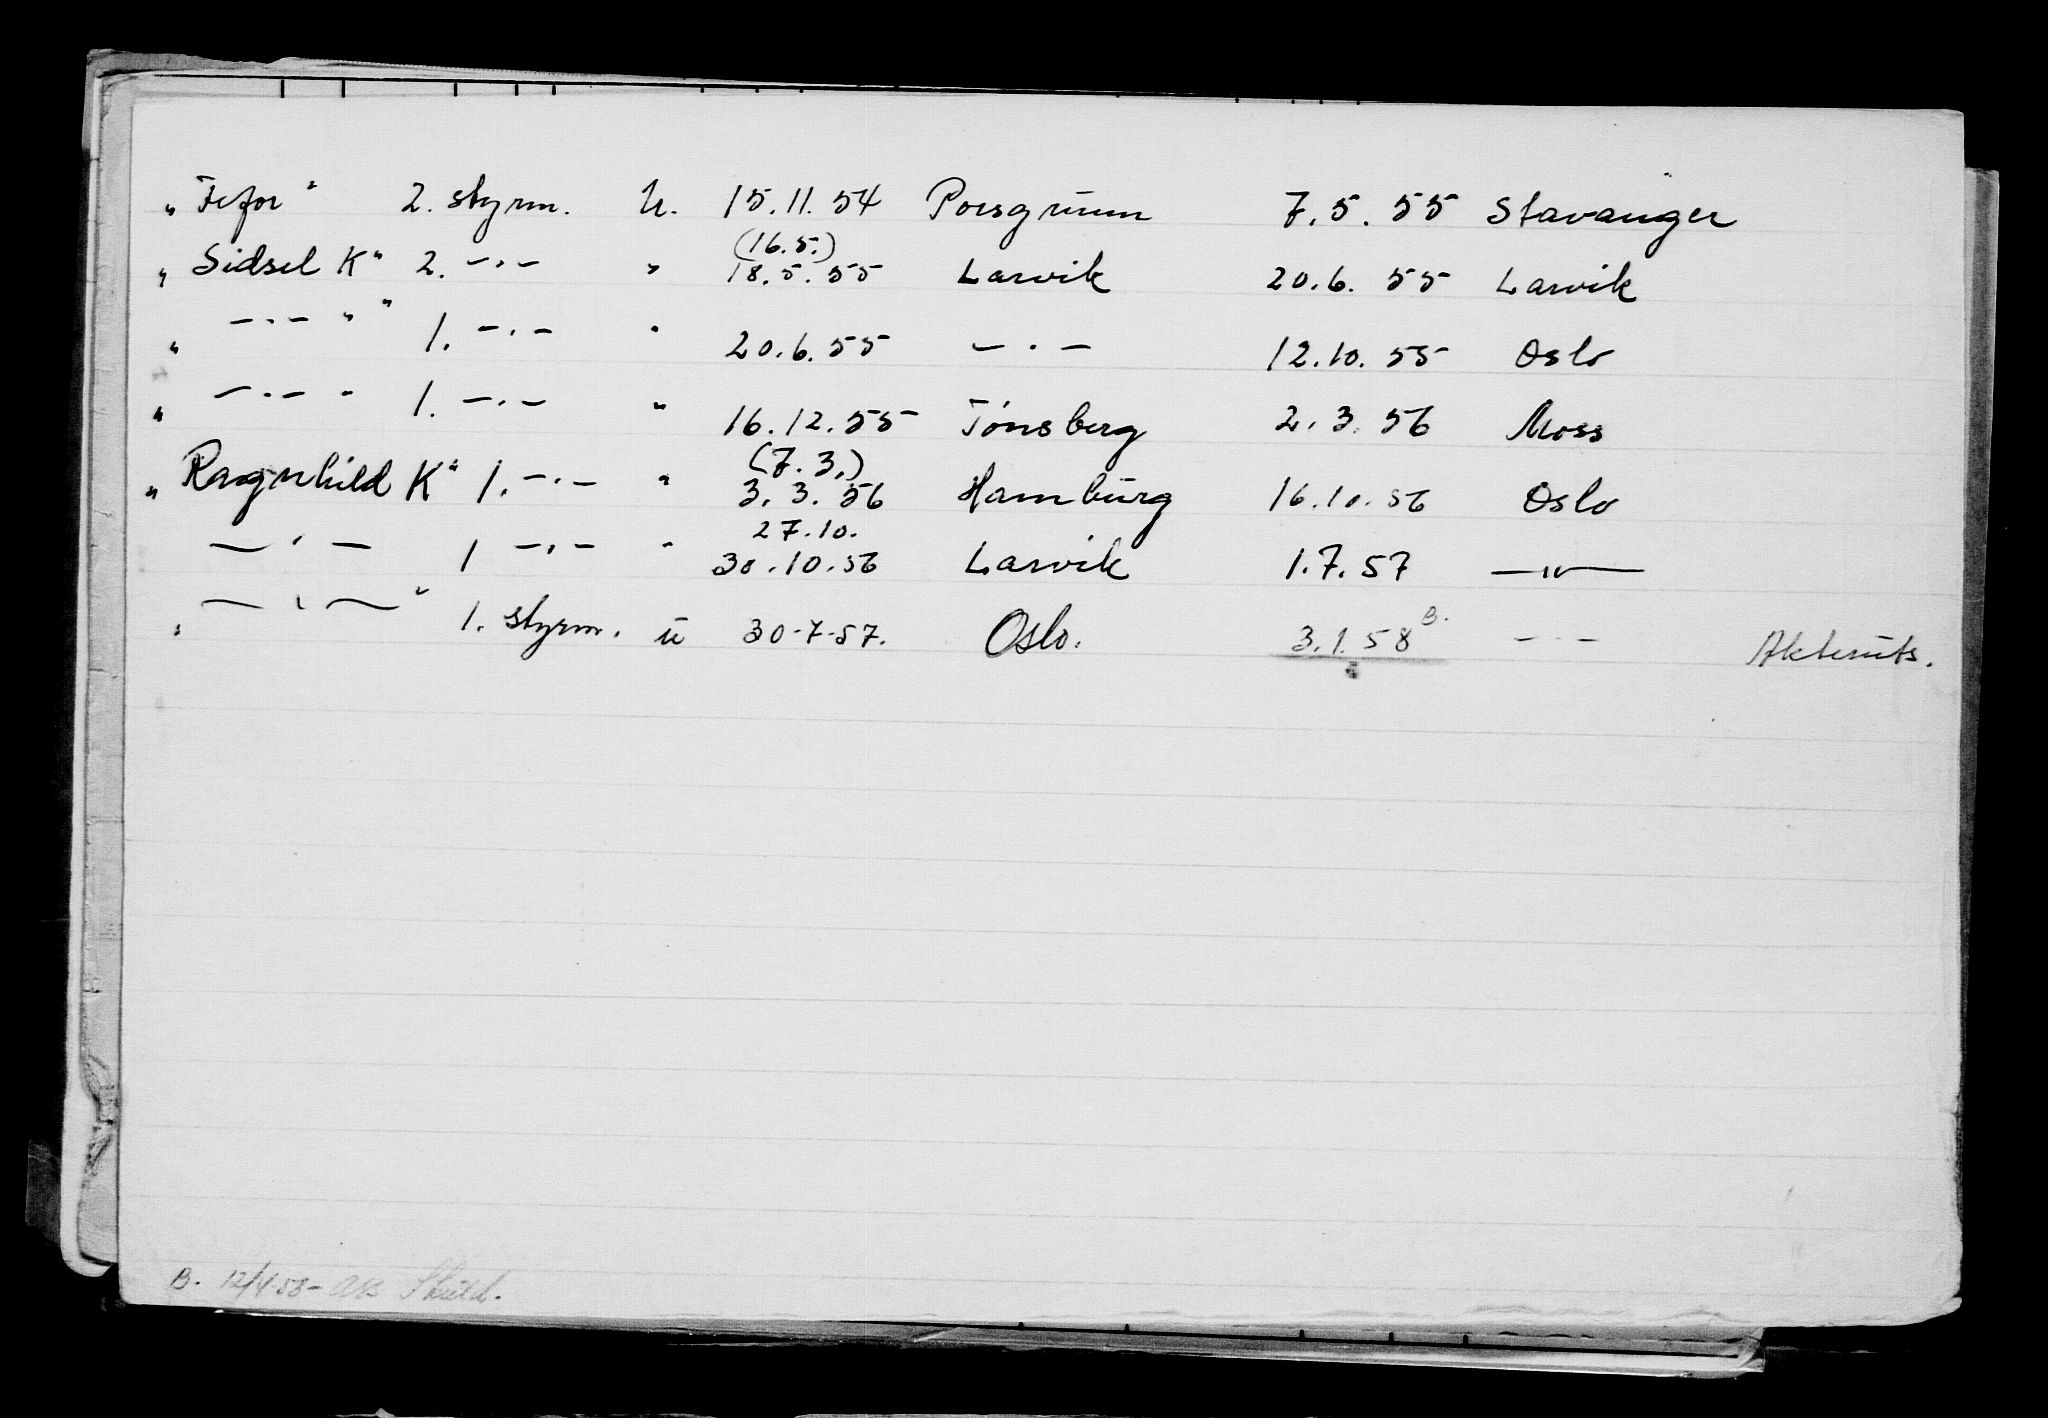 „Fefor" 2. styrm. u. 15.11.54 Porsgrunn 7.5.55 Stavanger
(16.5.)
„Sidsel K" 2. -·- " 18.5.55 Larvik 20.6.55 Larvik
„ -·- " " 1. -·- " 20.6.55 -·- 12.10.55 Oslo
„ -·- " 1. -·- " 16.12.55 Tønsberg 2.3.56 Moss
(7.3.)
„Ragnhild K" 1. -·- " 3.3.56 Hamburg 16.10.56 Oslo
27.10.
-·- 1 -·- " 30.10.56 Larvik 1.7.57 -"-
„ -·- " 1. styrm. u 30-7-57. Oslo. 3.1.58 B. -·- Akteruts.
B. 12/4.58-